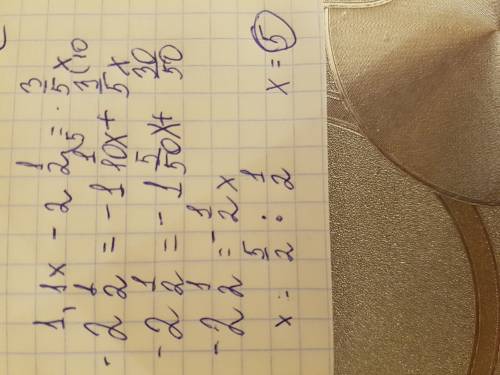 1,1x - 2 1/2 = 3/5 x
-2 1/2 = -1 1/10 x + 3/5 x
-2 1/2 = -1 5/50 x + 30/50
-2 1/2 = -1/2 x
x = 5/2 : 1/2 x = 5